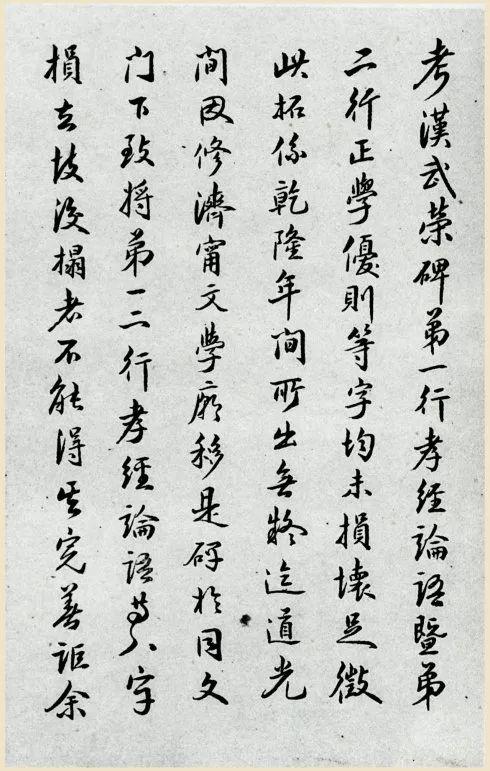 考漢武榮碑弟一行孝經論語暨弟
二行正學優則等字均未損壞足徵
此拓係乾隆年間所出無疑迄道光
間因修濟甯文學廟移是碑於同文
门下致将弟一二行孝經論語等八字
損去故後搨者不能得其完善詎余